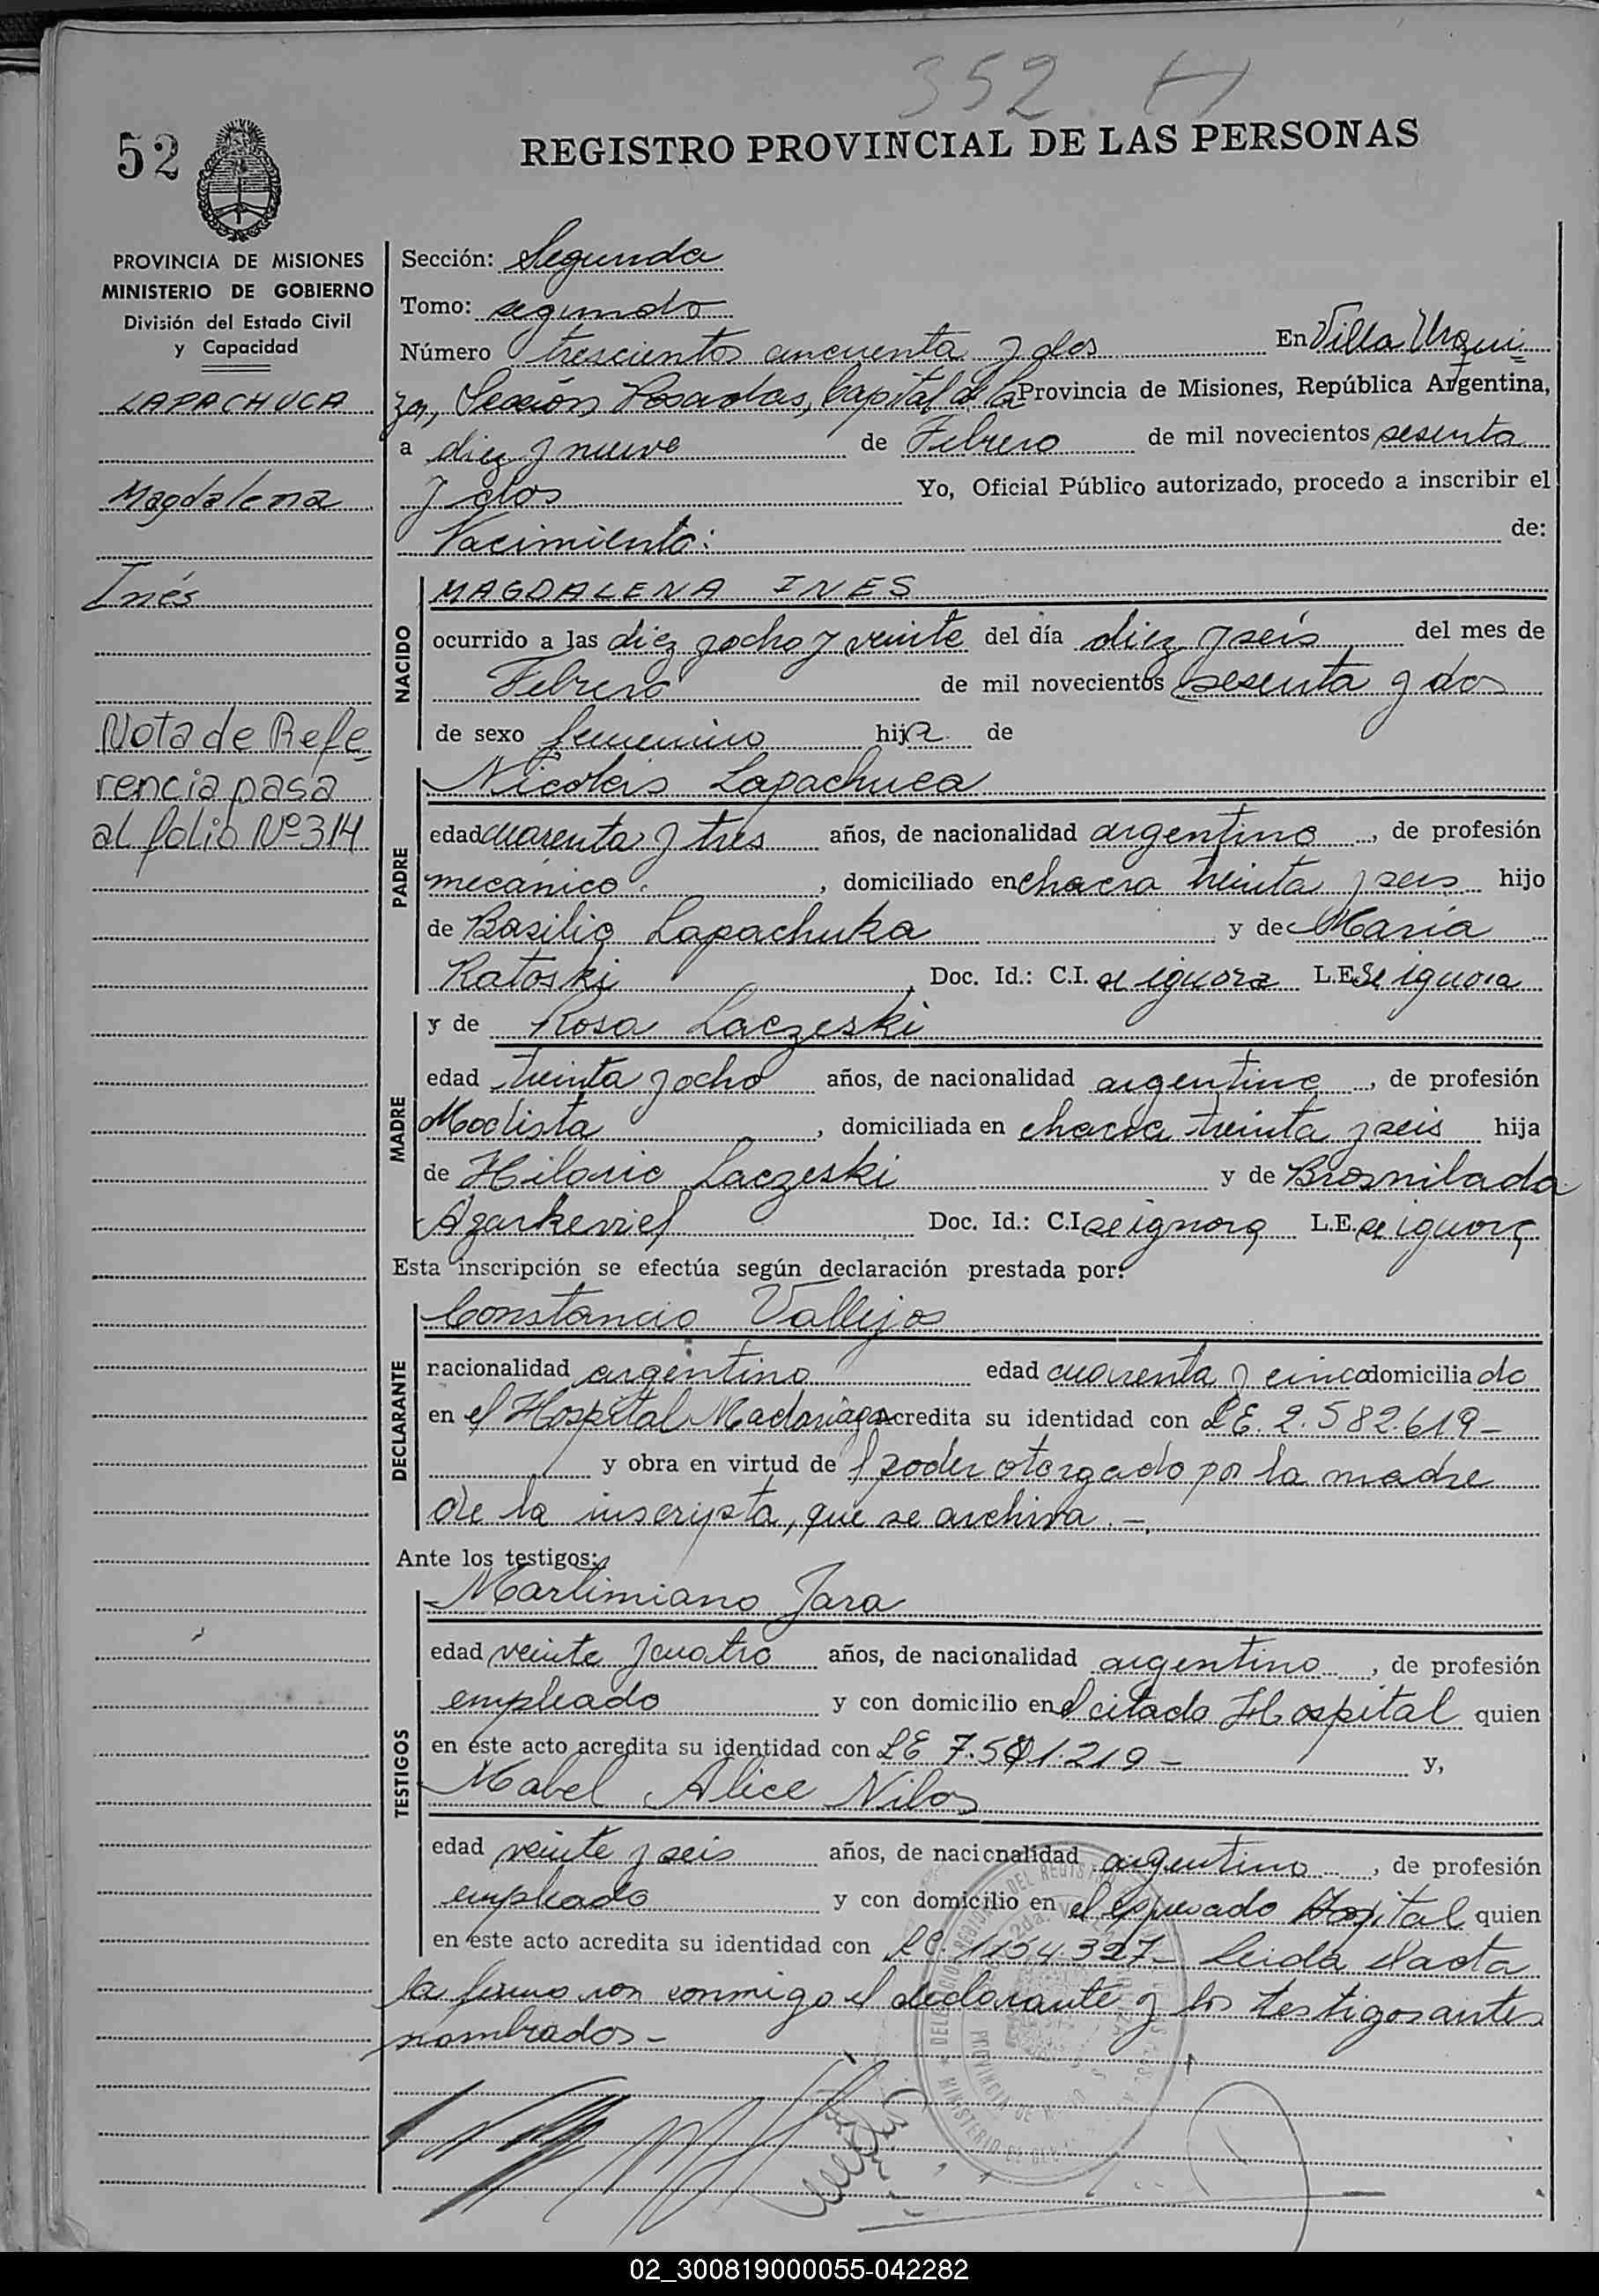 352
52
REGISTRO PROVINCIAL DE LAS PERSONAS
PROVINCIA DE MISIONES
MINISTERIO DE GOBIERNO
División del Estado Civil
y Capacidad
LAPACHUCA
Magdalena
Inés
Nota de Refe-
rencia pasa
al folio Nº 314
Sección: Segunda
Tomo: segundo
Número trescientos cincuenta y dos En Villa Urqui=
za, Sección Posadas, Capital de la Provincia de Misiones, República Argentina,
a diez y nueve de Febrero de mil novecientos sesenta
y dos Yo, Oficial Público autorizado, procedo a inscribir el
Nacimiento: de:
NACIDO
MAGDALENA INES
ocurrido a las diez y ocho y veinte del día diez y seis del mes de
Febrero de mil novecientos sesenta y dos
de sexo femenino hija de
PADRE
Nicolás Lapachuca
edad cuarenta y tres años, de nacionalidad argentino, de profesión
mecánico, domiciliado en chacra treinta y seis hijo
de Basilio Lapachuka y de María
Ratoski, Doc. Id.: C.I. se ignora L.E. se ignora
MADRE
y de Rosa Laczeski
edad treinta y ocho años, de nacionalidad argentina, de profesión
Modista, domiciliada en chacra treinta y seis hija
de Hilario Laczeski y de Brosnilada
Azarkevief Doc. Id.: C.I. se ignora L.E. se ignora
Esta inscripción se efectúa según declaración prestada por:
DECLARANTE
Constancio Vallejos
nacionalidad argentino edad cuarenta y cinco domiciliado
en el Hospital Madariaga acredita su identidad con LE. 2.582.619-
y obra en virtud de l poder otorgado por la madre
de la inscripta, que se archiva.-
Ante los testigos:
TESTIGOS
Martimiano Jara
edad veinte y cuatro años, de nacionalidad argentino, de profesión
empleado y con domicilio en el citado Hospital quien
en éste acto acredita su identidad con LE 7.541.219- y,
Mabel Alice Nilos
edad veinte y seis años, de nacionalidad argentino, de profesión
empleado y con domicilio en el expresado Hospital quien
en éste acto acredita su identidad con LC. 1.154.327- Leida el acta
la firman con conmigo el declarante y los testigos antes
nombrados-
02_300819000055-042282